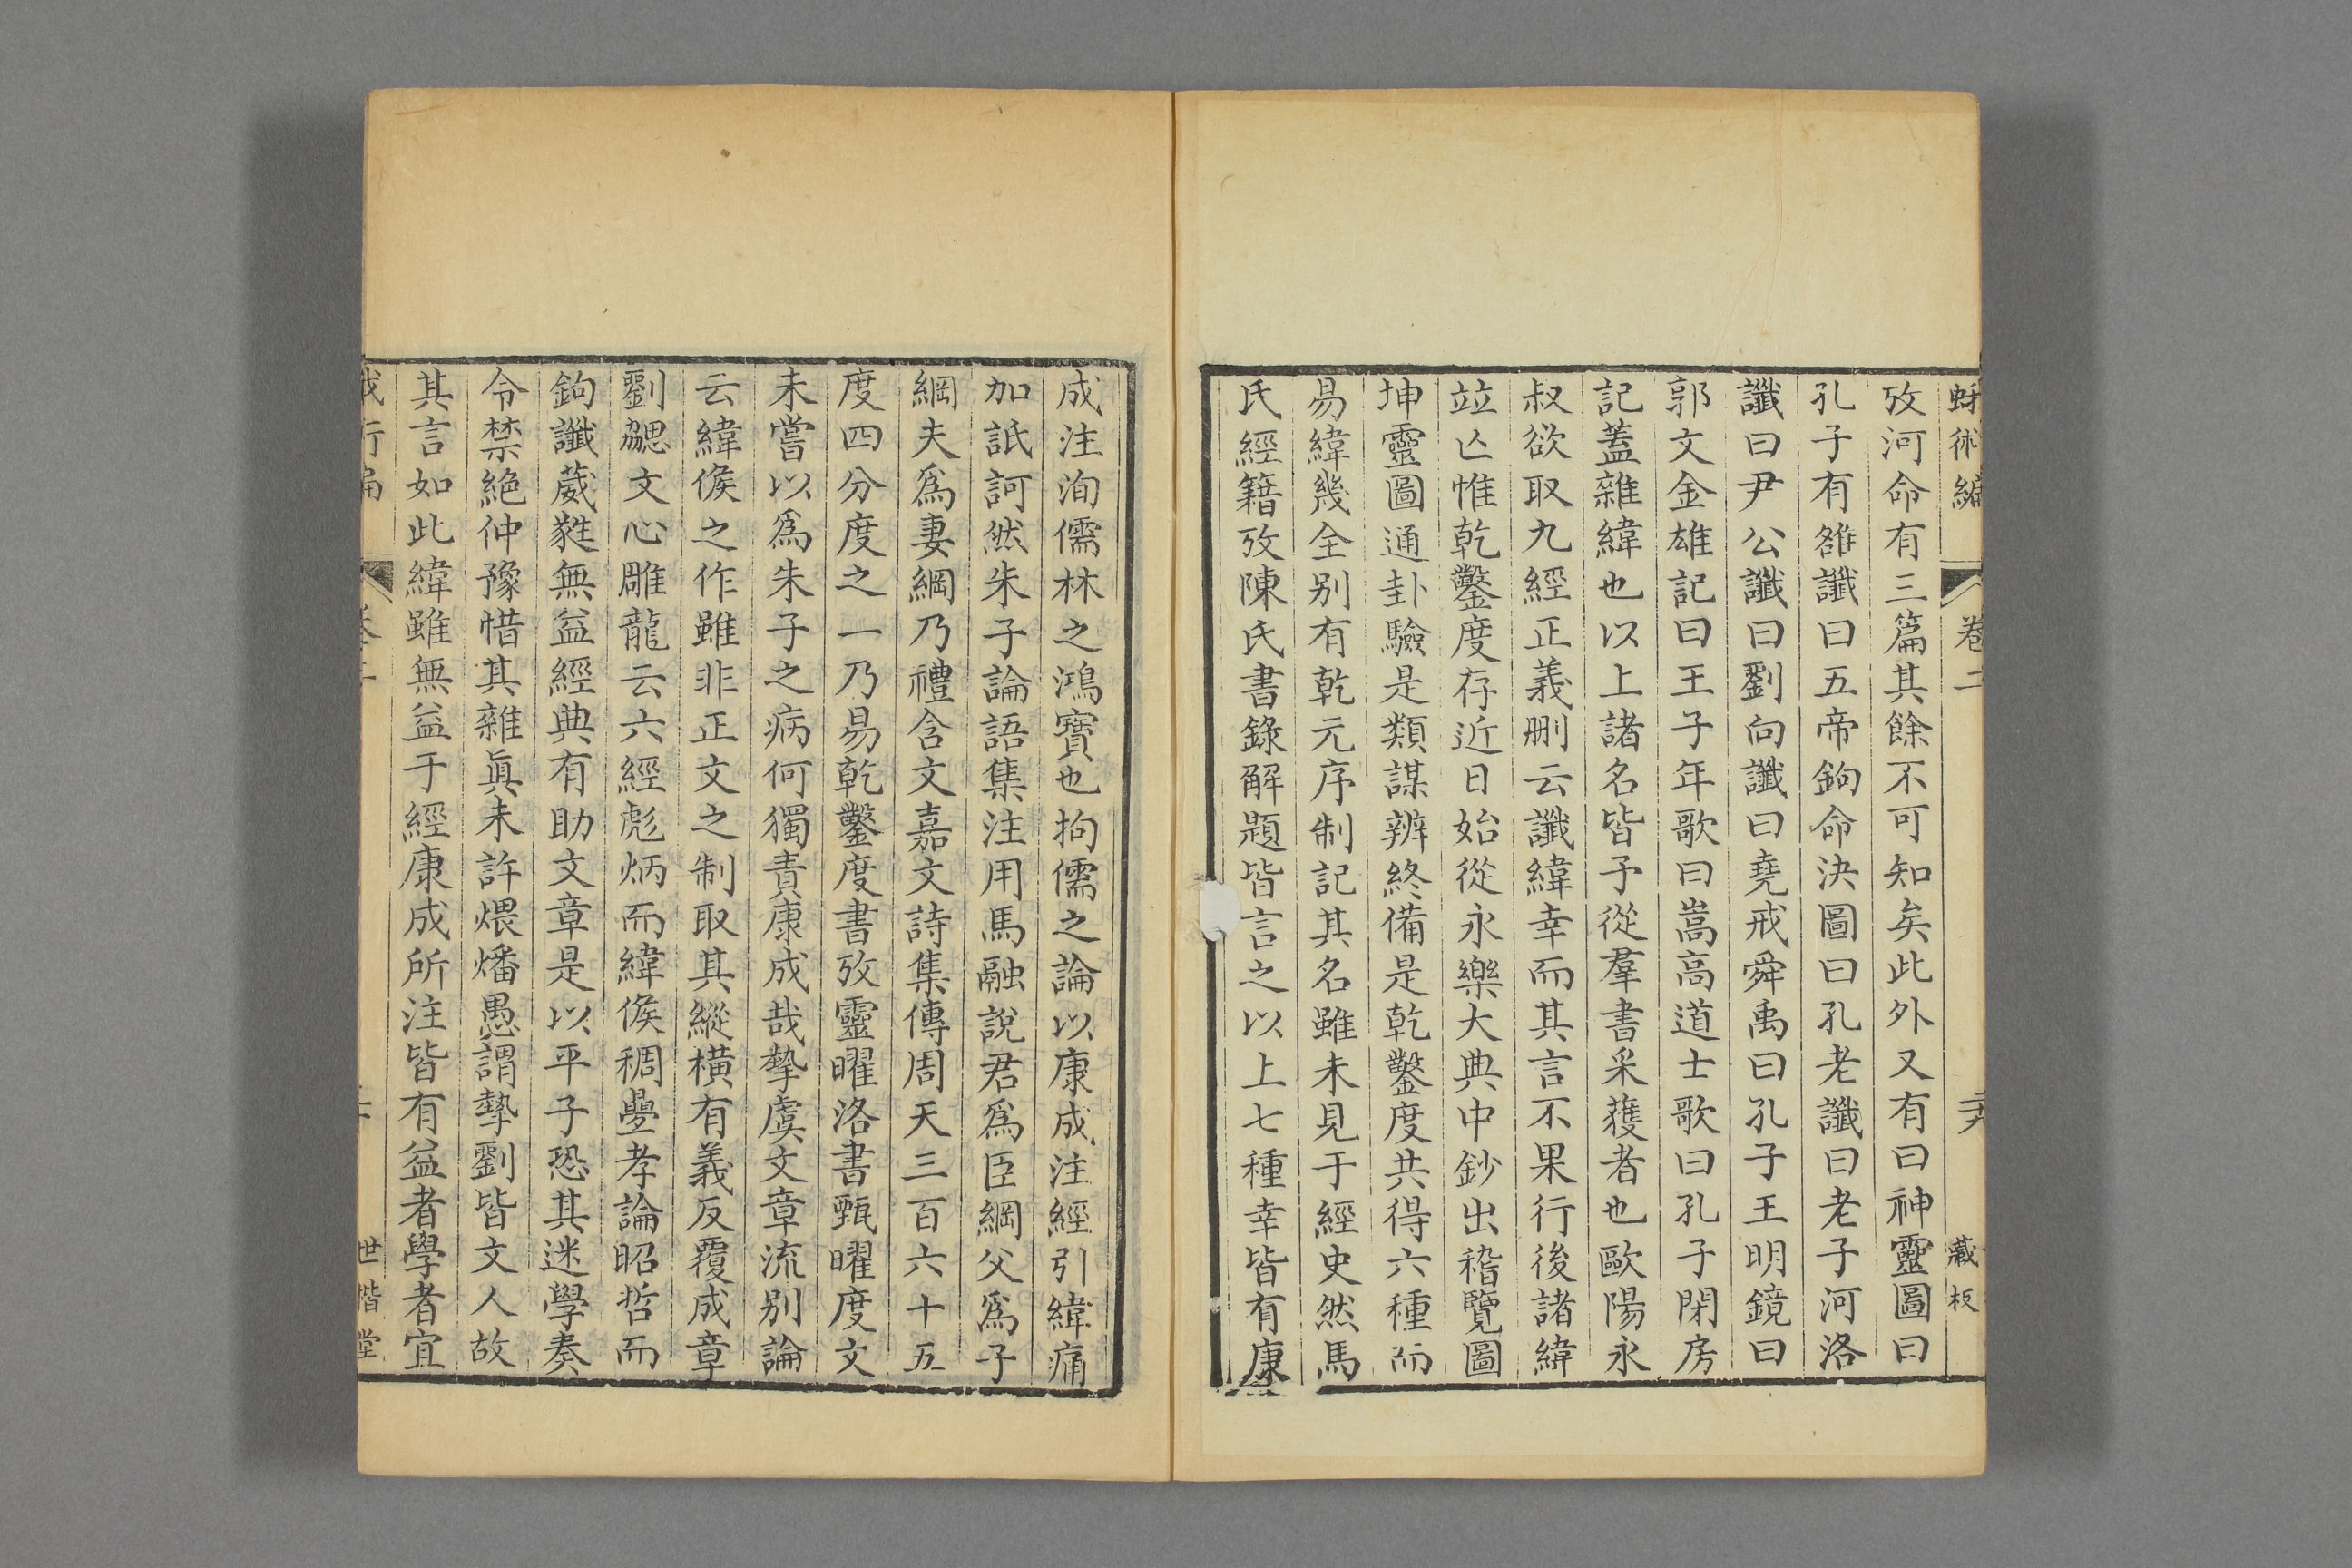 蛾術編 卷二 藏板
攷河命有三篇其餘不可知矣此外又有曰神靈圖曰
孔子有雒讖曰五帝鉤命決圖曰孔老讖曰老子河洛
讖曰尹公讖曰劉向讖曰堯戒舜禹曰孔子王明鏡曰
郭文金雄記曰王子年歌曰嵩高道士歌曰孔子閉房
記蓋雜緯也以上諸名皆予從羣書采獲者也歐陽永
叔欲取九經正義刪云讖緯幸而其言不果行後諸緯
竝亾惟乾鑿度存近日始從永樂大典中鈔出稽覽圖
坤靈圖通卦驗是類謀辨終備是乾鑿度共得六種而
易緯幾全別有乾元序制記其名雖未見于經史然馬
氏經籍攷陳氏書錄解題皆言之以上七種幸皆有康
成注洵儒林之鴻寶也拘儒之論以康成注經引緯痛
加詆訶然朱子論語集注用馬融說君爲臣綱父爲子
綱夫爲妻綱乃禮含文嘉文詩集傳周天三百六十五
度四分度之一乃易乾鑿度書攷靈曜洛書甄曜度文
未嘗以爲朱子之病何獨責康成哉摯虞文章流別論
云緯候之作雖非正文之制取其縱橫有義反覆成章
劉勰文心雕龍云六經彪炳而緯候稠疊孝論昭哲而
鉤讖葳蕤無益經典有助文章是以平子恐其迷學奏
令禁絕仲豫惜其雜眞未許煨燔愚謂摯劉皆文人故
其言如此緯雖無益于經康成所注皆有益者學者宜
世楷堂